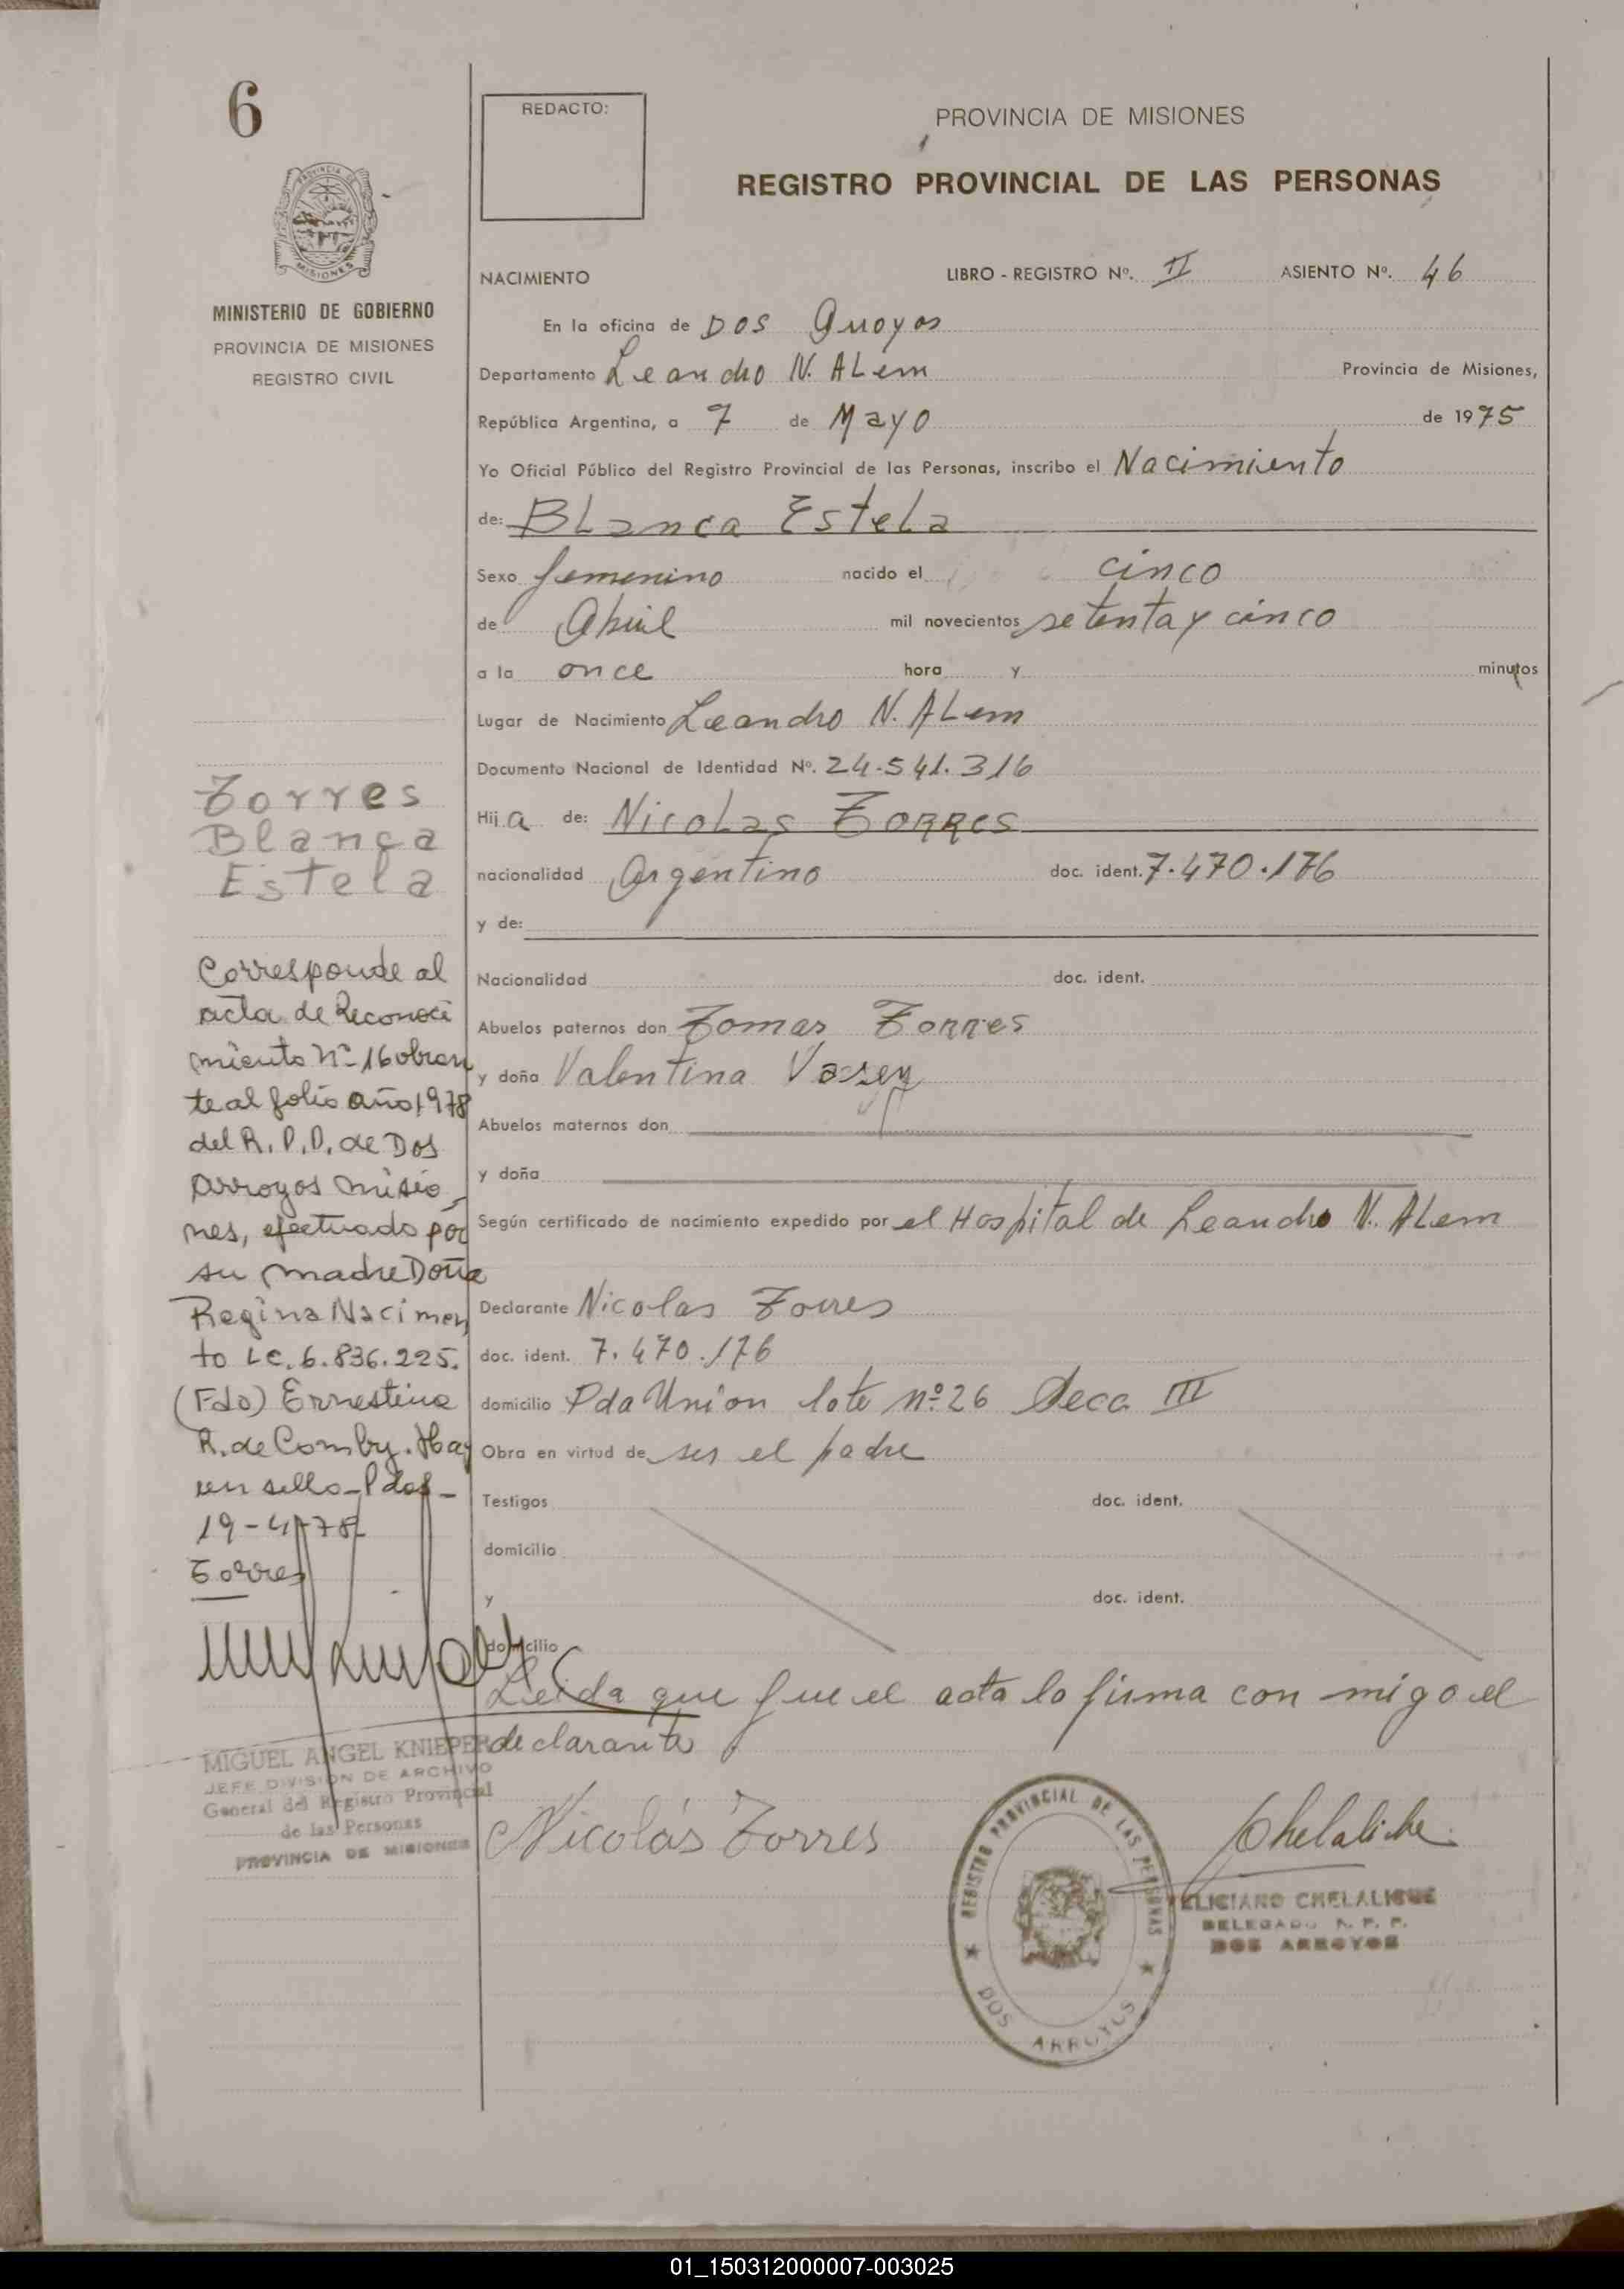 6
REDACTO:
PROVINCIA DE MISIONES
REGISTRO PROVINCIAL DE LAS PERSONAS
PROVINCIA DE
MISIONES
MINISTERIO DE GOBIERNO
PROVINCIA DE MISIONES
REGISTRO CIVIL
NACIMIENTO LIBRO - REGISTRO Nº. II ASIENTO Nº. 46
En la oficina de DOS Arroyos
Departamento Leandro N. ALem Provincia de Misiones,
República Argentina, a 7 de Mayo de 1975
Yo Oficial Público del Registro Provincial de las Personas, inscribo el Nacimiento
de: BLanca Estela
Sexo femenino nacido el cinco
de Abril mil novecientos setenta y cinco
a la once hora y minutos
Lugar de Nacimiento Leandro N. ALem
Documento Nacional de Identidad Nº. 24.541.316
Hija de: Nicolas Torres
nacionalidad Argentino doc. ident. 7.470.176
y de:
Nacionalidad doc. ident.
Abuelos paternos don Tomas Torres
y doña Valentina
Abuelos maternos don
y doña
Según certificado de nacimiento expedido por el Hospital de Leandro N. ALem
Declarante Nicolas Torres
doc. ident. 7.470.176
domicilio Pda Union lote nº 26 Secc III
Obra en virtud de ser el padre
Testigos doc. ident.
domicilio
y doc. ident.
domicilio
Leida que fue el acta lo firma con migo el
declarante
Nicolás Torres
Chelaliche
FELICIANO CHELALICHE
DELEGADO R. P. P.
DOS ARROYOS
REGISTRO PROVINCIAL DE LAS PERSONAS
DOS ARROYOS
Torres
Blanca
Estela
Corresponde al
acta de Reconoci
miento Nº 16 obran
te al folio año 1978
del R.P.P. de Dos
Arroyos Misio
nes, efectuado por
su madre Doña
Regina Nacimen
to LC. 6.836.225.
(Fdo) Ernestina
R. de Comby. Hay
un sello - Pdas -
19-4-78
Torres
MIGUEL ANGEL KNIEPER
JEFE DIVISION DE ARCHIVO
General del Registro Provincial
de las Personas
PROVINCIA DE MISIONES
01_150312000007-003025